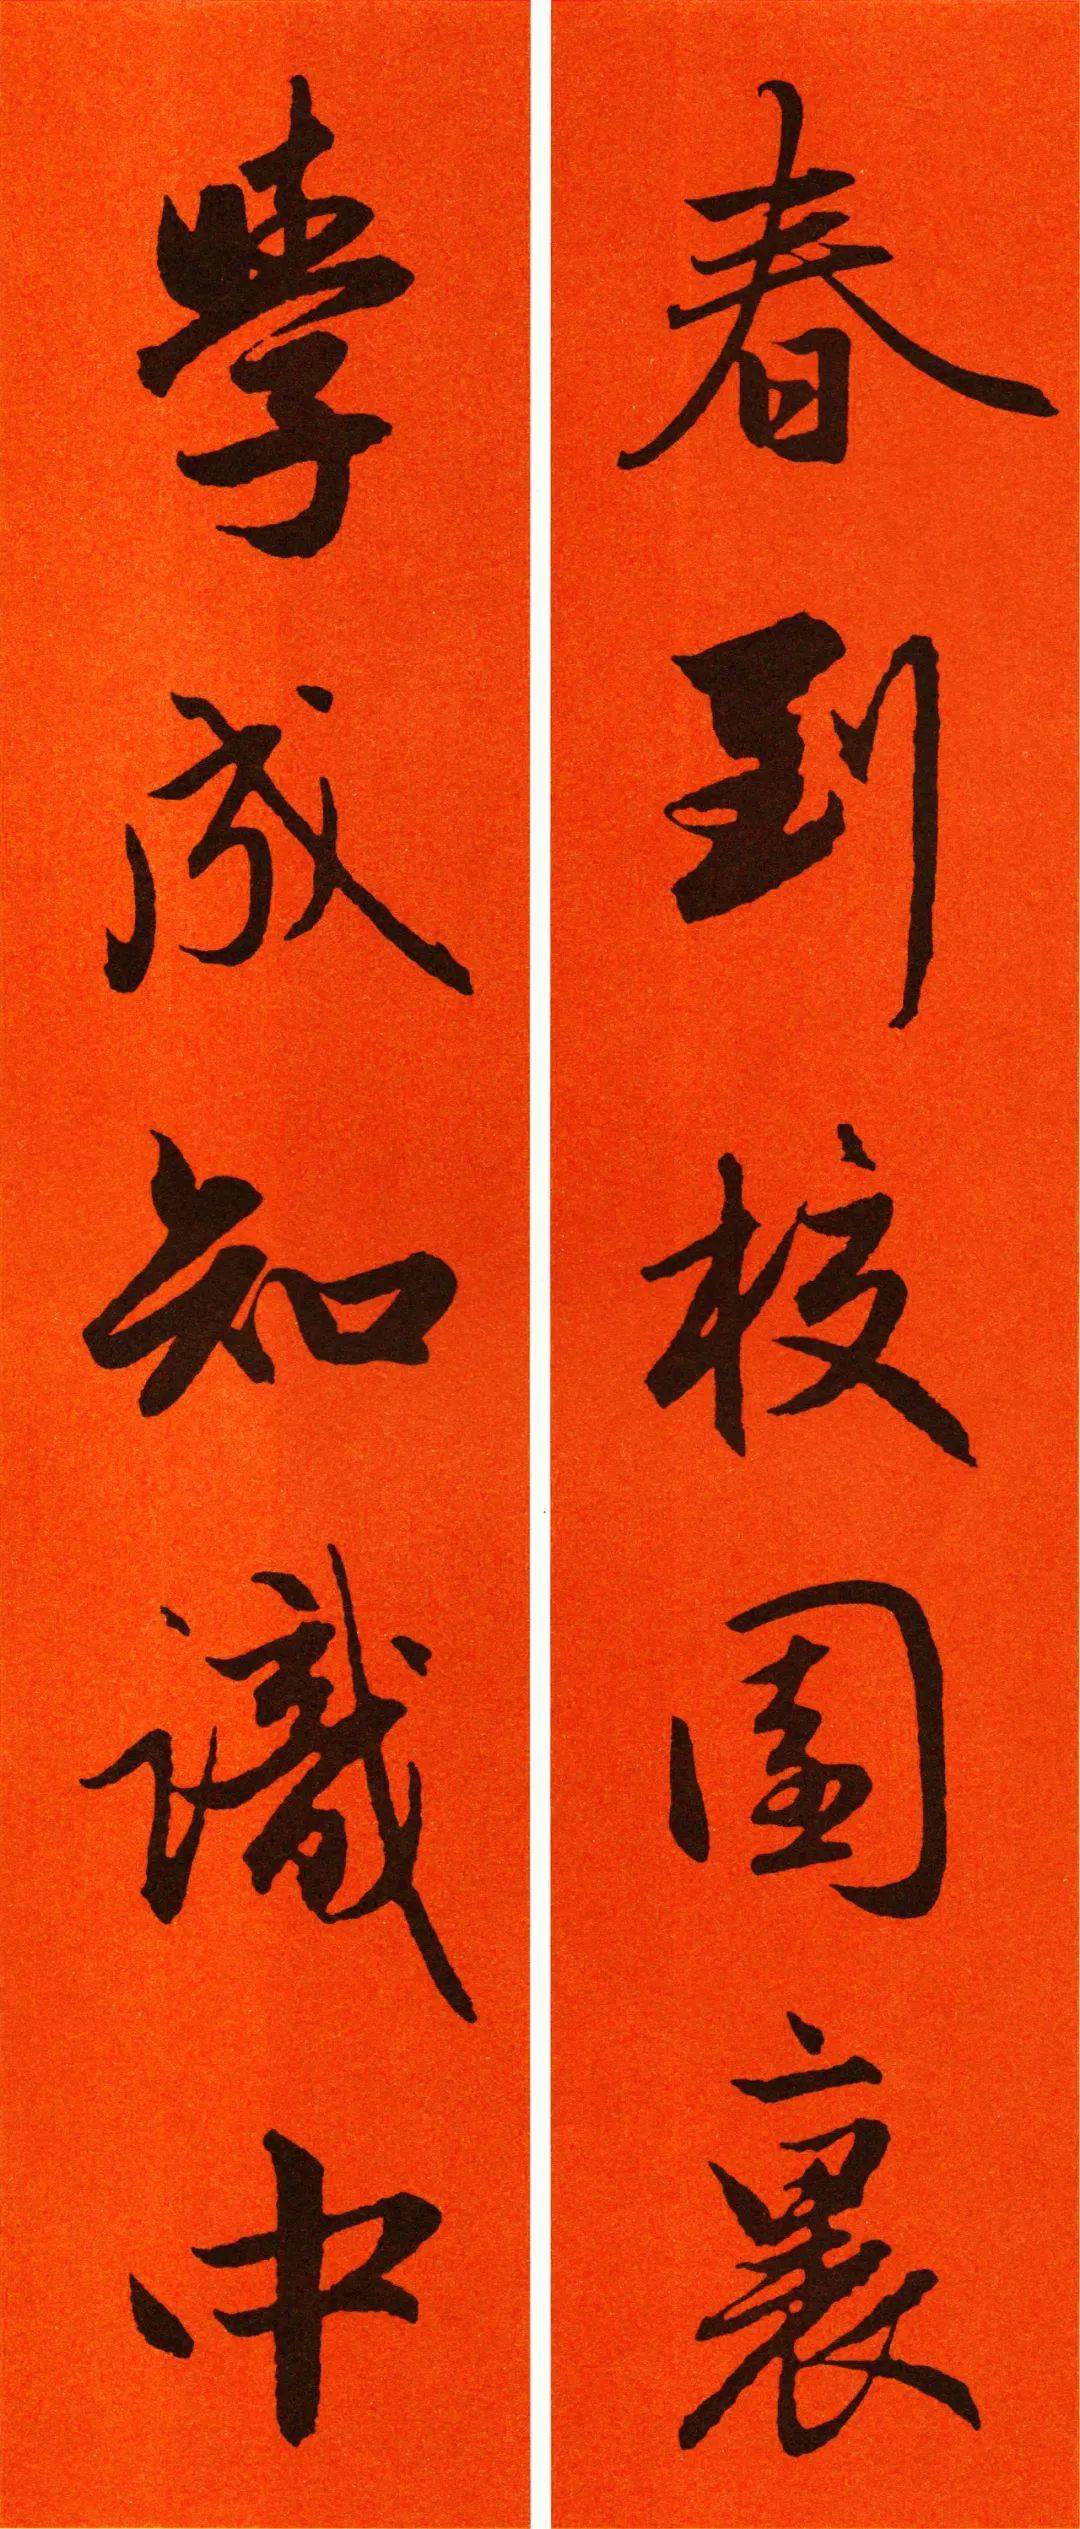 春到校園裏
學成知識中